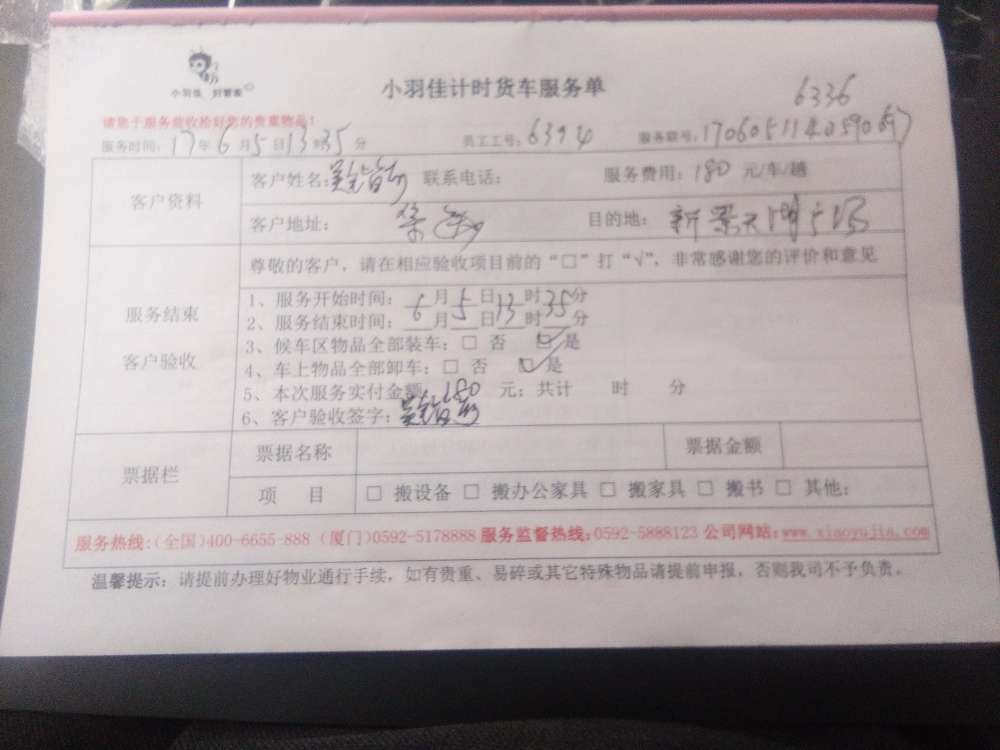 小羽佳 好管家
小羽佳计时货车服务单
6336
请您于服务前收拾好您的贵重物品!
服务时间: 17年6月5日13时35分 员工工号: 6394 服务联号: 17060511405906
客户资料
客户姓名: 联系电话: 服务费用: 180 元/车/趟
客户地址: 目的地: 新景天湖广场
服务结束
客户验收
尊敬的客户，请在相应验收项目前的“□”打“√”，非常感谢您的评价和意见
1、服务开始时间: 6月5日13时35分
2、服务结束时间: 月 日 时 分
3、候车区物品全部装车: □ 否 ☑是
4、车上物品全部卸车: □ 否 ☑是
5、本次服务实付金额 180 元; 共计 时 分
6、客户验收签字:
票据栏
票据名称 票据金额
项 目 □ 搬设备 □ 搬办公家具 □ 搬家具 □ 搬书 □ 其他:
服务热线:(全国)400-6655-888 (厦门)0592-5178888 服务监督热线:0592-5888123 公司网站:www.xiaoyujia.com
温馨提示: 请提前办理好物业通行手续，如有贵重、易碎或其它特殊物品请提前申报，否则我司不予负责。